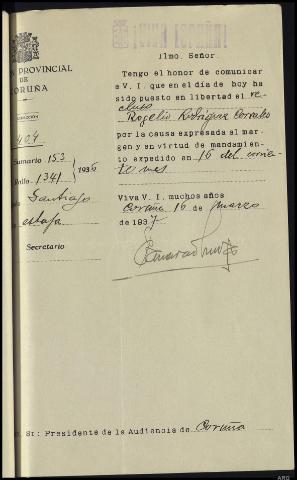 ¡VIVA ESPAÑA!
PROVINCIAL
DE
CORUÑA
Sumario 153
Rollo 1341 1936
Santiago
estafa
Secretario
Ilmo. Señor.
Tengo el honor de comunicar
a V. I. que en el día de hoy ha
sido puesto en libertad el re-
cluso
Rogelio Rodríguez
por la causa expresada al mar-
gen y en virtud de mandamien-
to expedido en 16 del corrien-
te mes
Viva V. I. muchos años
Coruña 16 de marzo
de 1937
Sr: Presidente de la Audiencia de Coruña